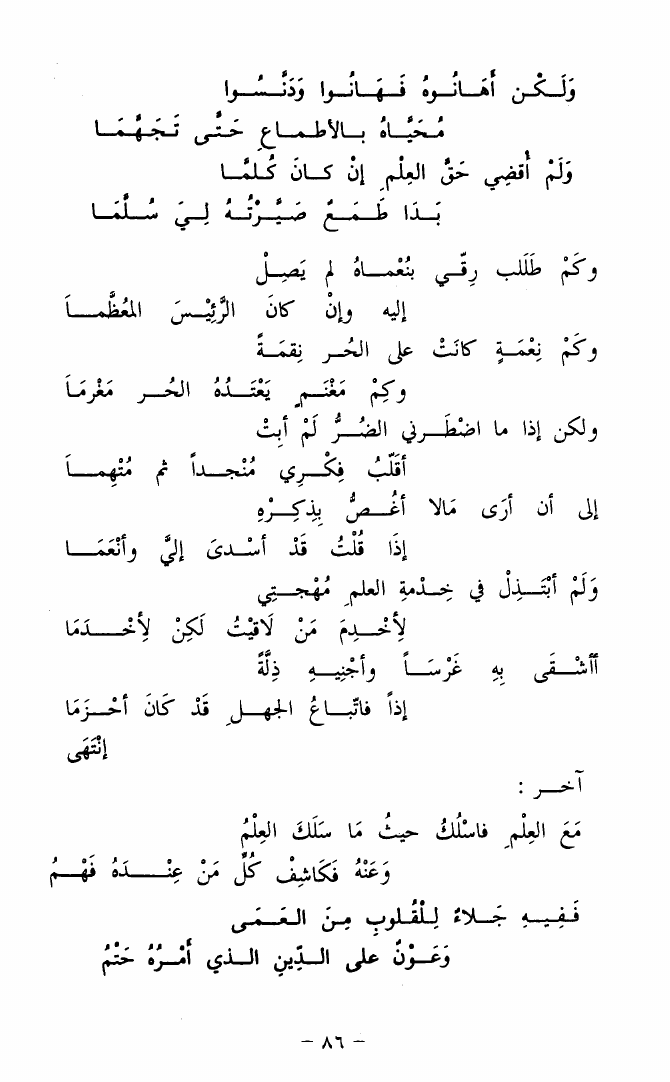 وَلَكْن أَهَانُوهُ فَهَانُوا وَدَنَّسُوا
مُحَيَّاهُ بالأطماعِ حَتَّى تَجَهَّمَا
وَلَمْ أقضِي حَقَّ العِلْمِ إنْ كانَ كُلمَّا
بَدَا طَمَعٌ صَيَّرْتُهُ لِيَ سُلَّمَا
وكَمْ طَلَلب رِقّي بنُعْمَاهُ لم يَصِلْ
إليه وإنْ كانَ الرَّئِيْسَ المعُظَّمَا
وكَمْ نِعْمَةٍ كانَتْ على الحُر نِقمَةً
وكِمْ مَغْنَمٍ يَعْتَدُهُ الحُر مَغْرمَا
ولكن إذا ما اضْطَرني الضُرُّ لَمْ أبِتْ
أقَلّبُ فِكْرِي مُنْجداً ثم مُتْهِماَ
إلى أن أرَى مَالا أغُصُّ بِذِكِرْهِ
إذَا قُلْتُ قَدْ أسْدىَ إليَّ وأنْعَمَا
وَلَمْ أبْتَذِلْ في خِدْمةِ العلمِ مُهْجتِي
لِأخْدِمَ مَنْ لَاقيْتُ لَكِنْ لِأخْدَمَا
أأشْقَى بِهِ غَرْسَاً وأجْنِيهِ ذِلَّةً
إذاً فاتّباعُ الجهلِ قَدْ كَانَ أحْزمَا
إنْتَهَى
آخر :
مَعَ العِلْمِ فاسْلُكْ حيثُ مَا سَلَكَ العِلْمُ
وَعَنْهُ فكَاشِفْ كُلَّ مَنْ عِنْدَهُ فَهْمُ
فَفِيهِ جَلاءٌ لِلْقُلوبِ مِنَ العَمَى
وَعَوْنٌ على الدِّينِ الذي أمْرُهُ حَتْمُ
– ٨٦ –